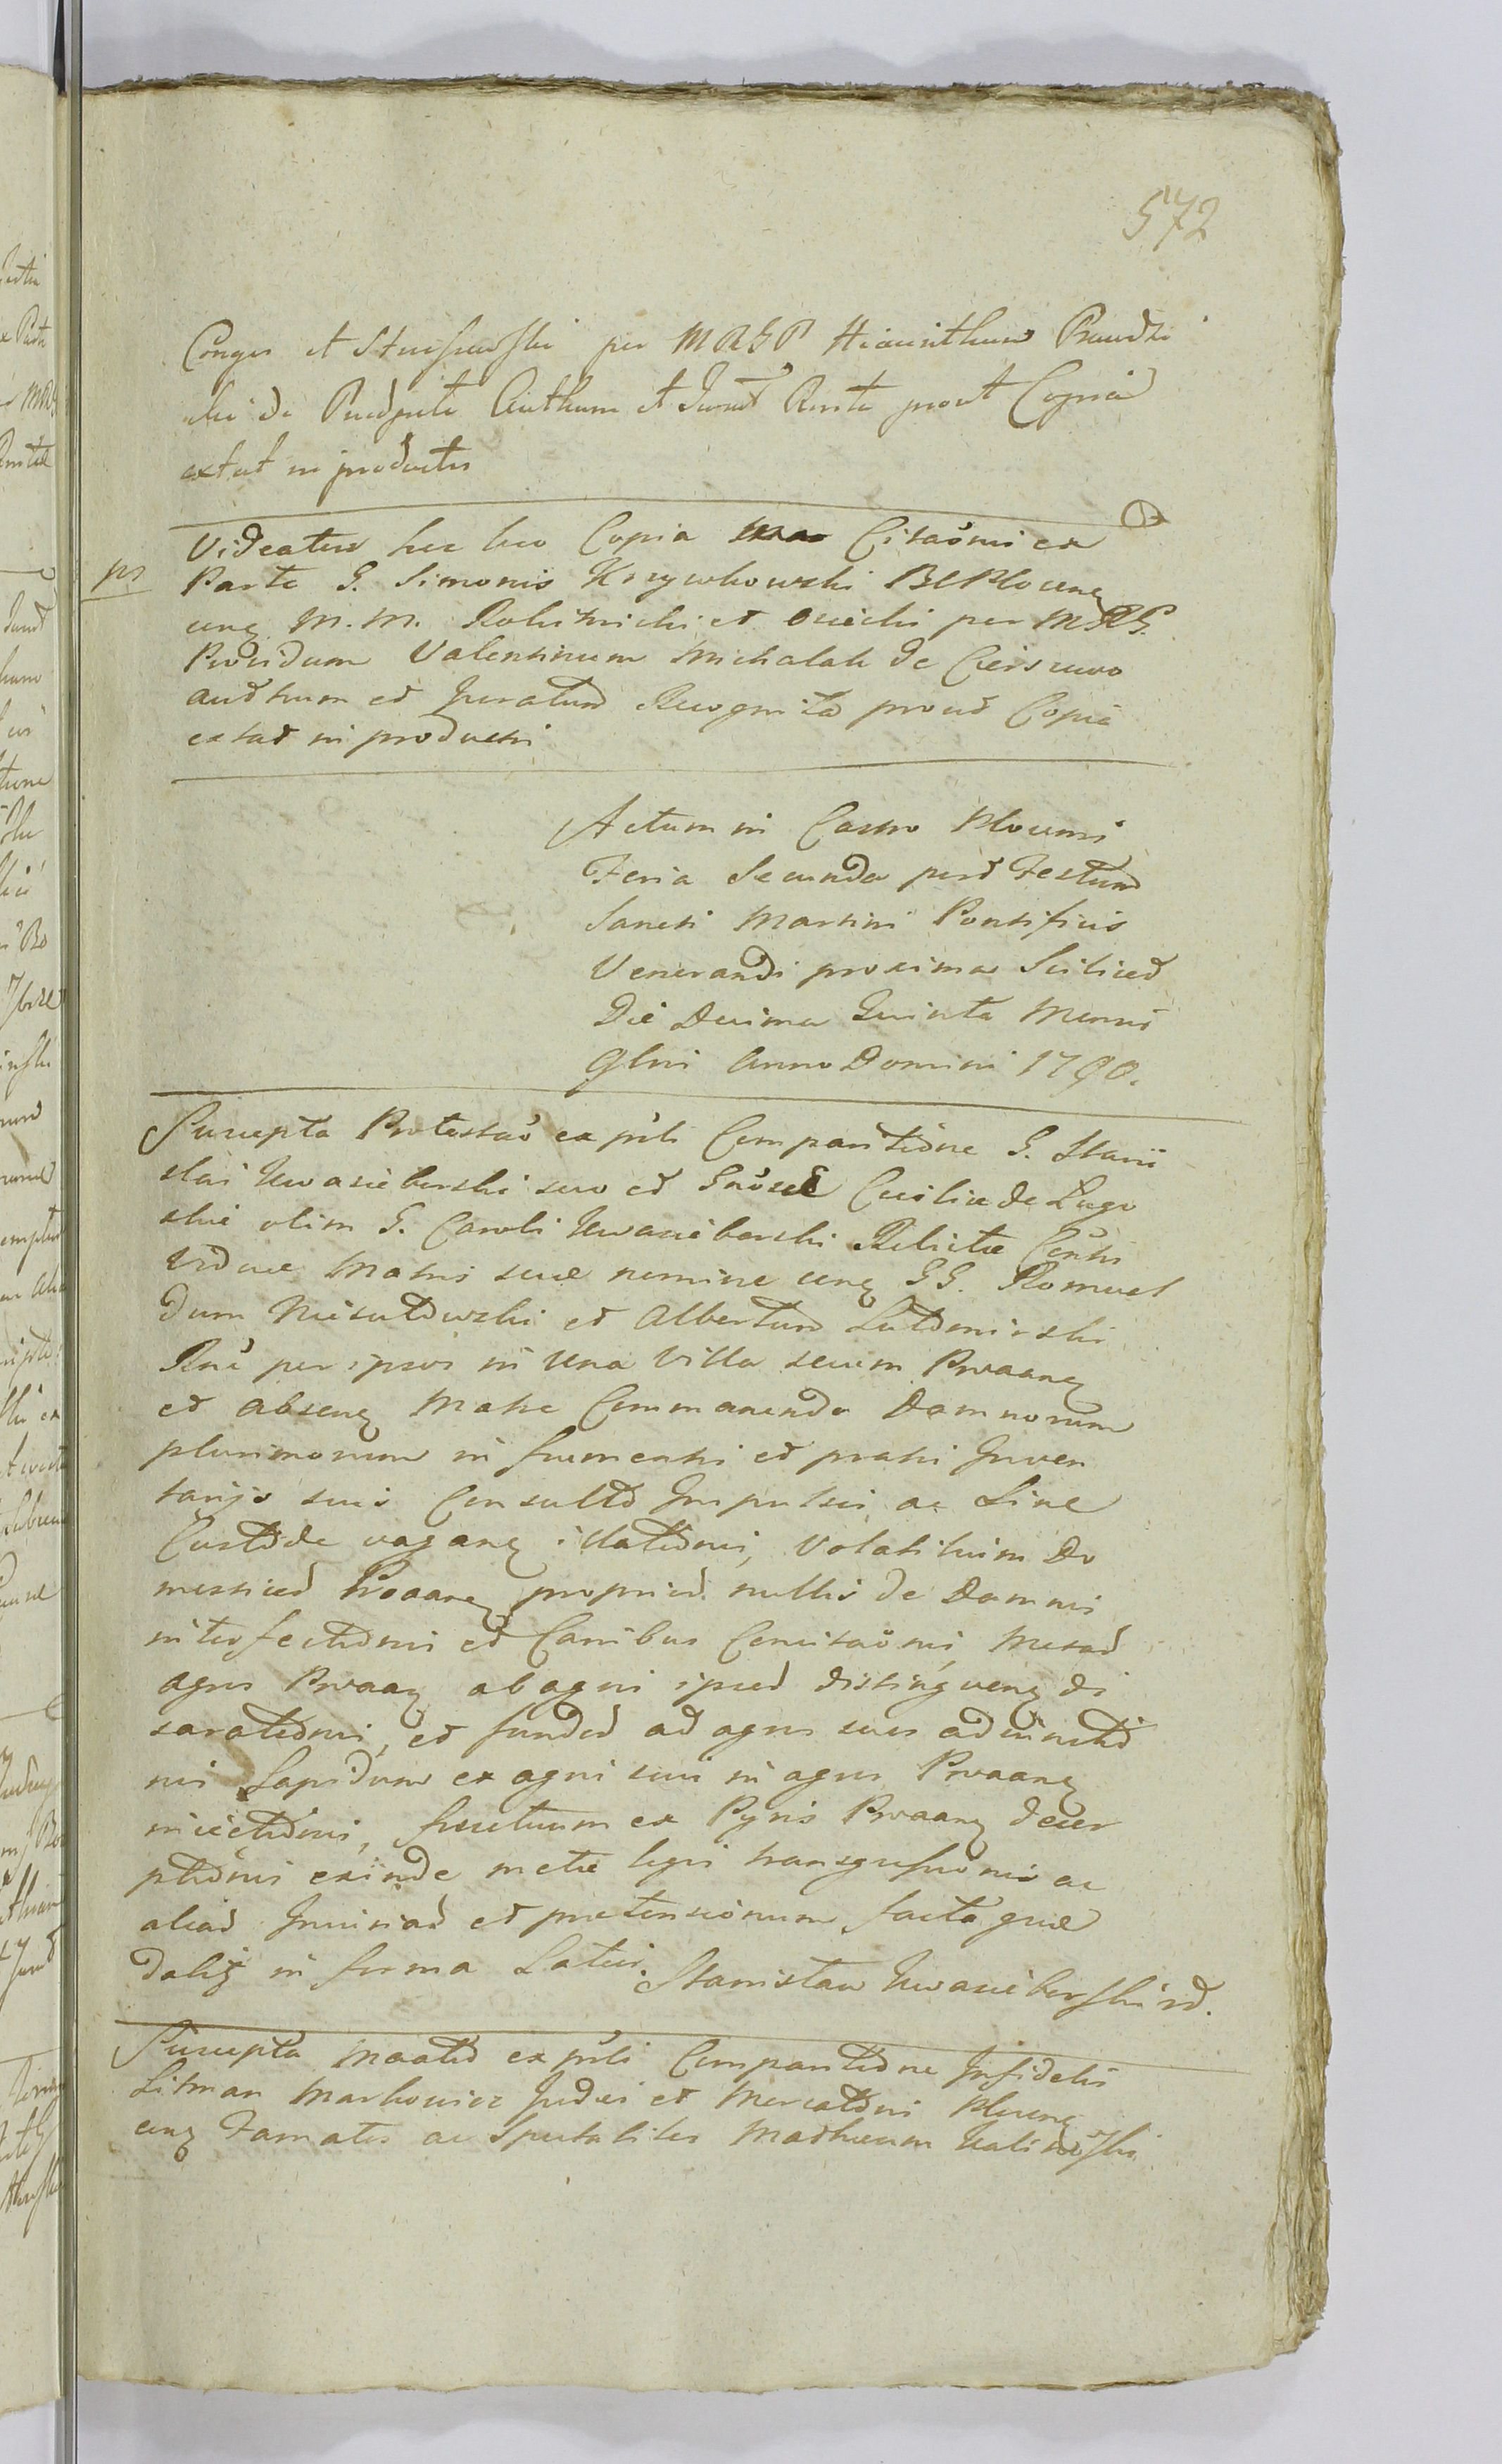 572
Conger et per MRGP Hiacinthum Prudzi
ski de Auththum et Jurat Rnta prout Copia
extat in productis
Videatur hic loco Copia Citaõnis ex
ps
Parte G. Simonis Krzywkowski BCPlocenẓ
cenẓ M. M. Rokitnicki et per MRG.
Providum Valentinum Michalak de
authum et Juratum Recognita prout Copia
extat in productis
Actum in Castro Plocensi
Feria Secunda post Festum
Sancti Martini Pontificis
Venerandi proxima Scilicet
Die Decima Quinta Mensis
9bris Anno Domini 1790.
Suscepta Protestaõ ex pñti Comparitione G. Stanis
slai Kwasieborski suo et Gñosae Ceciliae de Lugo
skie olim G. Caroli Kwasieborski Relictae Consti
Viduae Matris suae nomine cenẓ GG. Romual
dum Niesułowski et Albertum Lutomirski
Rnẽ per ipsos in Una Villa secum Prõaanẓ
et absenẓ Matre Commanendo Damnorum
plurimorum in frumentis et pratis Inven
tarijs suis Consulto Impulsis, ac Sine
Custode vaganẓ illationis, Volatilium Do
mesticor Prõaanẓ proprior nullis de Damnis
interfectionis et Canibus Concitaõnis, Metar
agros Prõaaẓ ab agris ipsor distingvenẓ di
saraationis, et fundor ad agros suos adiunctio
nis Lapidum ex agris suis in agros Prõaanẓ
iniectionis, fructuum ex Pyris Prõaanẓ decer
ptionis exinde metae legis transgressionis ac
aliar Iniuriar et pretensionum facta quae
daliẓ in forma Latior. Stanisław Kwasieborski rd.
Suscepta Maatio ex pñti Comparitione Infidelis
Litman Markowicz Judei et Mercatoris Plocenẓ
cenẓ Famatos ac Spectabiles Mathaeum Kalinoski